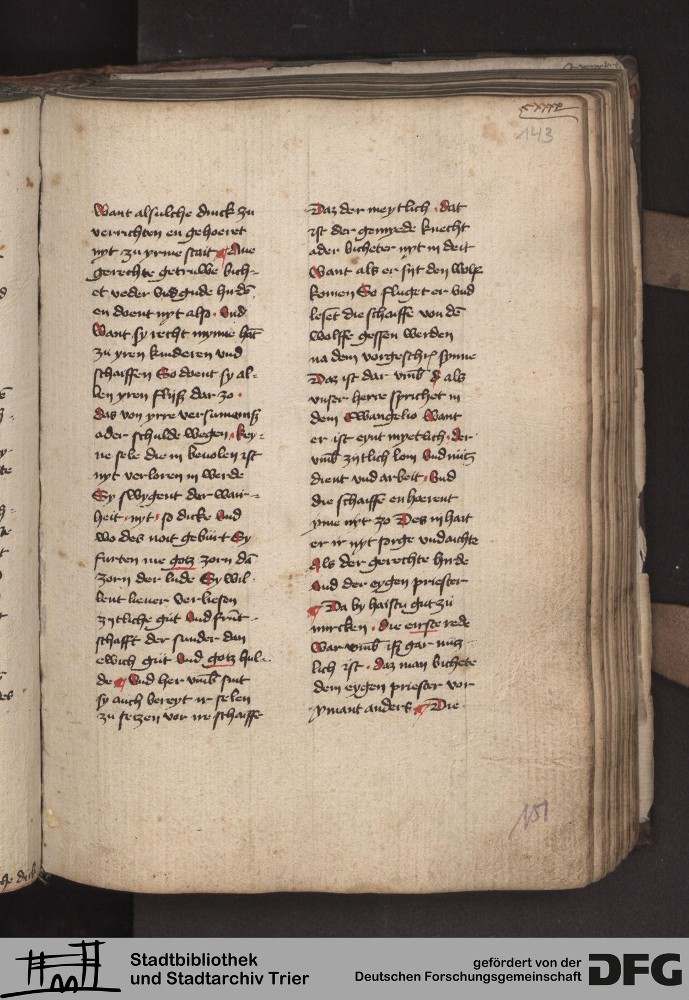 143
Want alsulche dinck zu
verrichten en gehoeret
nyt zu yrme stait Aue
gerechte getruwe bich-
et veder Vnd gude hirdē
en doent nyt also Vnd
want sy recht mynne hāt
zu yren kinderen vnd
schaiffen So doent sy al-
len yren flyß dar zo
das von yrre versumeniß
ader schulde wegen key-
ne sele die in beuolen ist
nyt verloren in werde
Sy swygent der wair-
heit nyt so dicke Vnd
wo des noit geburt Sy
furten me gotz zorn dā
zorn der lude Sy wil
lent lieuer verliesen
zytliche gut Vnd frūt-
schafft der sunder dan
ewich gut Vnd gotz hul-
de Vnd her vmb sint
sy auch bereyt ir selen
zu setzen vor ire schaiffe
Daz der meytlich dat
ist der gemyede knecht
ader bicheter nyt in deit
Want als er syt den wolff
komen So fluget er vnd
leset die schaiffe von dē
wolffe gessen werden
na dem vorgeschr synne
Daz ist dar vmb als
vnser herre sprichet in
dem Ewangelio Want
er ist eynt myetlich der
vmb zytlich lom Vnd nutz
dient vnd arbeit Vnd
die schaiffe en hoerent
yme nyt zo Des in hait
er ir nyt sorge vnd achte
Als der gerechte hirde
Vnd der eygen priester
Da by haistu gut zu
mircken die eirste rede
War vmb iß gar nutz
lich ist daz man bichete
dem eygen priester vor
ymant anders Die
151
Stadtbibliothek
und Stadtarchiv Trier
gefördert von der
Deutschen Forschungsgemeinschaft
DFG